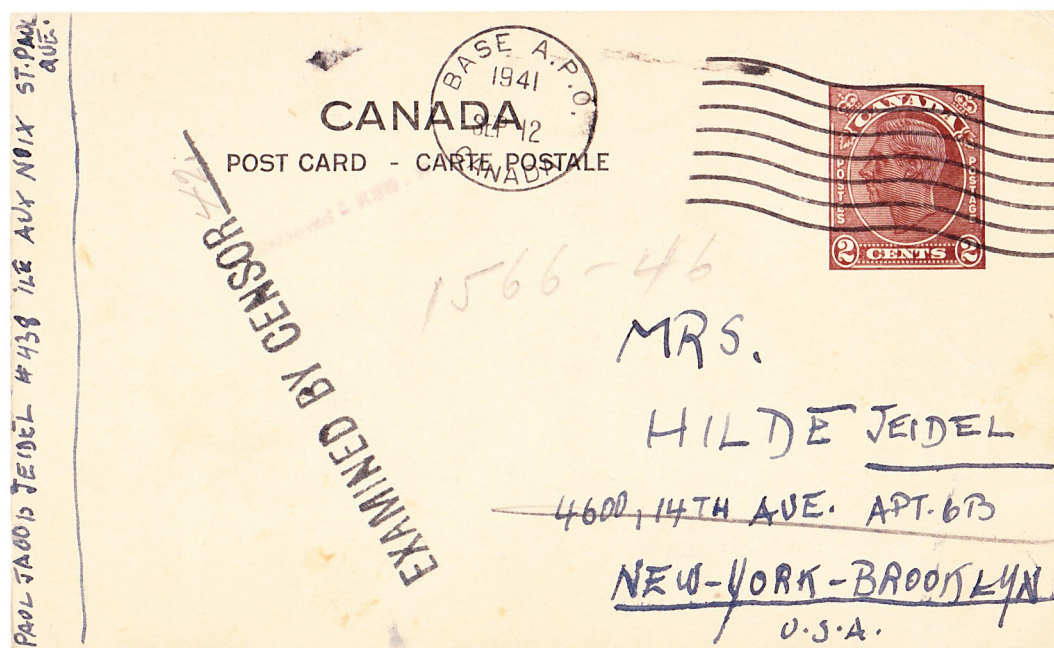 PAUL JACOB JEIDEL #438 ILE AUX NOIX ST. PAUL
QUE.
BASE A.P.O.
1941
SEP 12
CANADA
CANADA
POST CARD - CARTE POSTALE
CANADA
POSTES
POSTAGE
2 CENTS 2
EXAMINED BY CENSOR
1566-46
MRS.
HILDE JEIDEL
4600, 14TH AVE. APT. 6B
NEW-YORK-BROOKLYN
U.S.A.